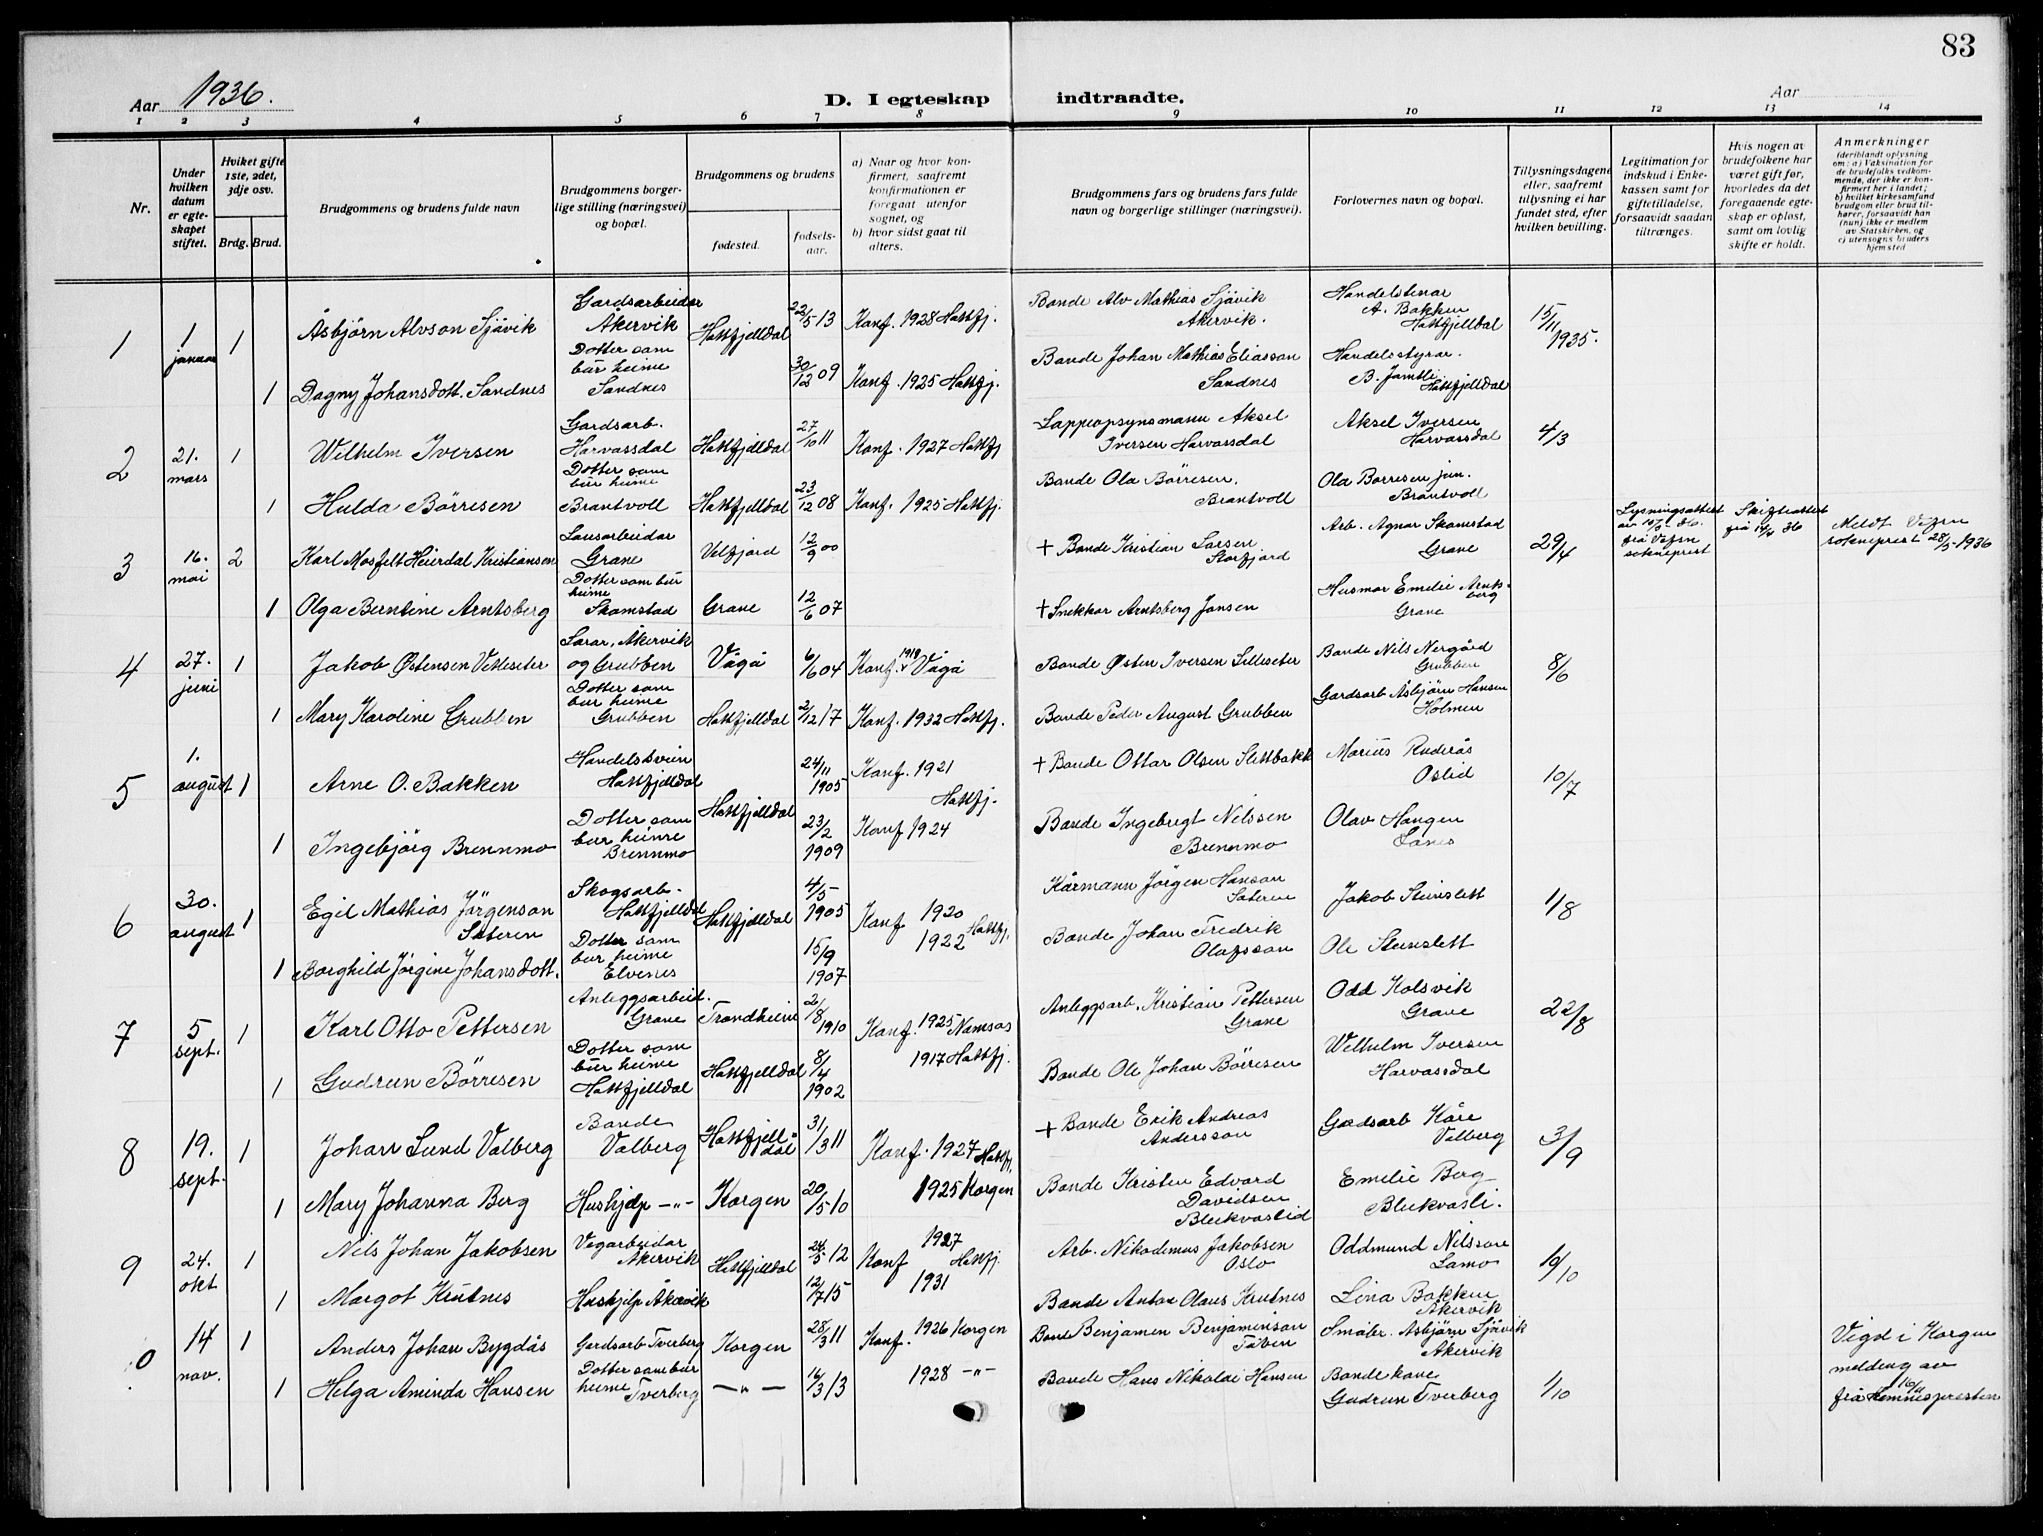 83
Aar 1936.
D. I egteskap indtraadte.
Aar
1 2 3 4 5 6 7 8 9 10 11 12 13 14
Nr.
Under hvilken datum er egteskapet stiftet.
Hviket gifte 1ste, 2det, 3dje osv.
Brdg. Brud.
Brudgommens og brudens fulde navn
Brudgommens borgerlige stilling (næringsvei) og bopæl.
Brudgommens og brudens
fødested.
fødselsaar.
a) Naar og hvor konfirmert, saafremt konfirmationen er foregaat utenfor sognet, og
b) hvor sidst gaat til alters.
Brudgommens fars og brudens fars fulde navn og borgerlige stillinger (næringsvei).
Forlovernes navn og bopæl.
Tillysningsdagene eller, saafremt tillysning ei har fundet sted, efter hvilken bevilling.
Legitimation for indskud i Enkekassen samt for giftetilladelse, forsaavidt saadan tiltrænges.
Hvis nogen av brudefolkene har været gift før, hvorledes da det foregaaende egteskap er opløst, samt om lovlig skifte er holdt.
Anmerkninger
(deriblandt oplysning om: a) Vaksination for de brudefolks vedkommende, der ikke er konfirmert her i landet; b) hvilket kirkesamfund brudgom eller brud tilhører, forsaavidt han (hun) ikke er medlem av Statskirken, og c) utensogns bruders hjemsted
1 1 januar 1 Åsbjörn Alvson Sjåvik Gardsarbeidar Åkervik Hattfjelldal 22/5 13 Konf. 1928 Hattfj. Bonde Alv Mathias Sjåvik Åkervik. Handelstenar A. Bakken Hattfjelldal 15/11 1935.
1 Dagny Johansdott. Sandnes Dotter som bur heime Sandnes 30/12 09 Konf. 1925 Hattfj. Bonde Johan Mathias Eliasson Sandnes Handelsstyrar. B. Jamtli Hattfjelldal
2 21. mars 1 Wilhelm Iversen Gardsarb. Harvassdal Hattfjelldal 27/10 11 Konf. 1927 Hattfj Lappeopsynsmann Aksel Iversen Harvassdal Aksel Iversen Harvassdal 4/3
1 Hulda Börresen Dotter som bur heime Brantvoll Hattfjelldal 23/12 08 Konf. 1925 Hattfj. Bonde Ola Börresen, Brantvoll Ola Börresen jun. Brantvoll
3 16. mai 2 Karl Mosfelt Heierdal Kristiansen Lausarbeidar Grane Velfjord 12/9 00 + Bonde Kristian Larsen Storfjord Arb. Agnar Skamstad Grane 29/4 Lysningsattest av 10/5 36. frå Vefsn sokneprest Skifteattest frå 14/4 36 Meldt Vefsn sokneprest 28/5-1936
1 Olga Berntine Arntsberg Dotter som bur heime Skamstad Grane 12/6 07 + Snekkar Arntsberg Jansen Husmor Emelie Arntsberg Grane
4 27. juni 1 Jakob Østensen Vetleseter Lærar, Åkervik og Grubben Vågå 6/6 04 Konf. 1919 Vågå Bonde Østen Iversen Lilleseter Bonde Nils Nergård Grubben 8/6
1 Mary Karoline Grubben Dotter som bur heime Grubben Hattfjelldal 2/12 17 Konf. 1932 Hattfj. Bonde Peder August Grubben Gardsarb Åsbjörn Hansen Holmen
5 1. august 1 Arne O. Bakken Handelsbetjen Hattfjelldal Hattfjelldal 24/11 1905 Konf. 1921 Hattfj. + Bonde Ottar Olsen Slettbakk Marius Ruderås Oslid 10/7
1 Ingebjörg Brennmo Dotter som bur heime Brennmo 23/2 1909 Konf 1924 Bonde Ingebrigt Nilssen Brennmo Olav Haugen
6 30. august 1 Egil Mathias Jörgenson Sæteren Skogsarb. Hattfjelldal Hattfjelldal 4/5- 1905 Konf 1920 Hattfj. Kårmann Jörgen Hanson Sæteren Jakob Steinslett 1/8
1 Borghild Jörgine Johansdott. Dotter som bur heime Elvenes 15/9 1907 1922 Bonde Johan Fredrik Olafsson Ole Steinslett
7 5 sept. 1 Karl Otto Pettersen Anleggsarbeid. Grane Trondheim 2/8 1910 Konf. 1925 Namsos Anleggsarb. Kristian Pettersen Grane Odd Kolsvik Grane 22/8
1 Gudrun Börresen Dotter som bur heime Hattfjelldal Hattfjelldal 8/4 1902 1917 Hattfj. Bonde Ole Johan Börresen Wilhelm Iversen Harvassdal
8 19. sept. 1 Johan Lund Valberg Bonde Valberg Hattfjelldal 31/3 11 Konf. 1927 Hattfj. + Bonde Erik Andreas Andersson Gardsarb Kåre Valberg 3/9
1 Mary Johanna Berg Hushjelp -"- Korgen 20/5 10 1925 Korgen Bonde Kristen Edvard Davidsen Bleikvaslid Emelie Berg Bleikvasli.
9 24. okt 1 Nils Johan Jakobsen Vegarbeidar Åkervik Hattfjelldal 24/5 12 Konf 1927 Hattfj. Arb. Nikodemus Jakobsen Oslo Oddmund Nilsson Lamo 10/10
1 Margot Krutnes Hushjelp Åkervik 12/7 15 1931 Bonde Anton Olaus Krutnes Lina Bakken Åkervik
10 14 nov. 1 Anders Johan Bygdås Gardsarb Tverberg Korgen 28/3 11 Konf. 1926 Korgen Bonde Benjamen Benjaminson Småbr. Asbjörn Sjåvik Åkervik Vigd i Korgen melding av 16/11 frå Hemnespresten
1 Helga Aminda Hansen Dotter som bur heime Tverberg -"- 16/3 13 1928 -"- Bonde Hans Nikolai Hansen Bondekone Gudrun Tverberg 1/10